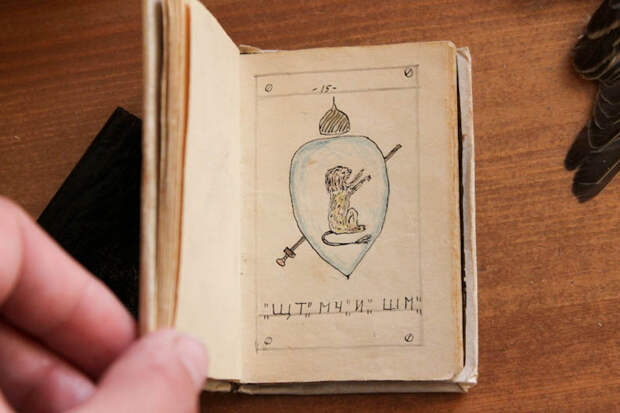 -15-
"ЩТ" МЧ "И" ШМ"